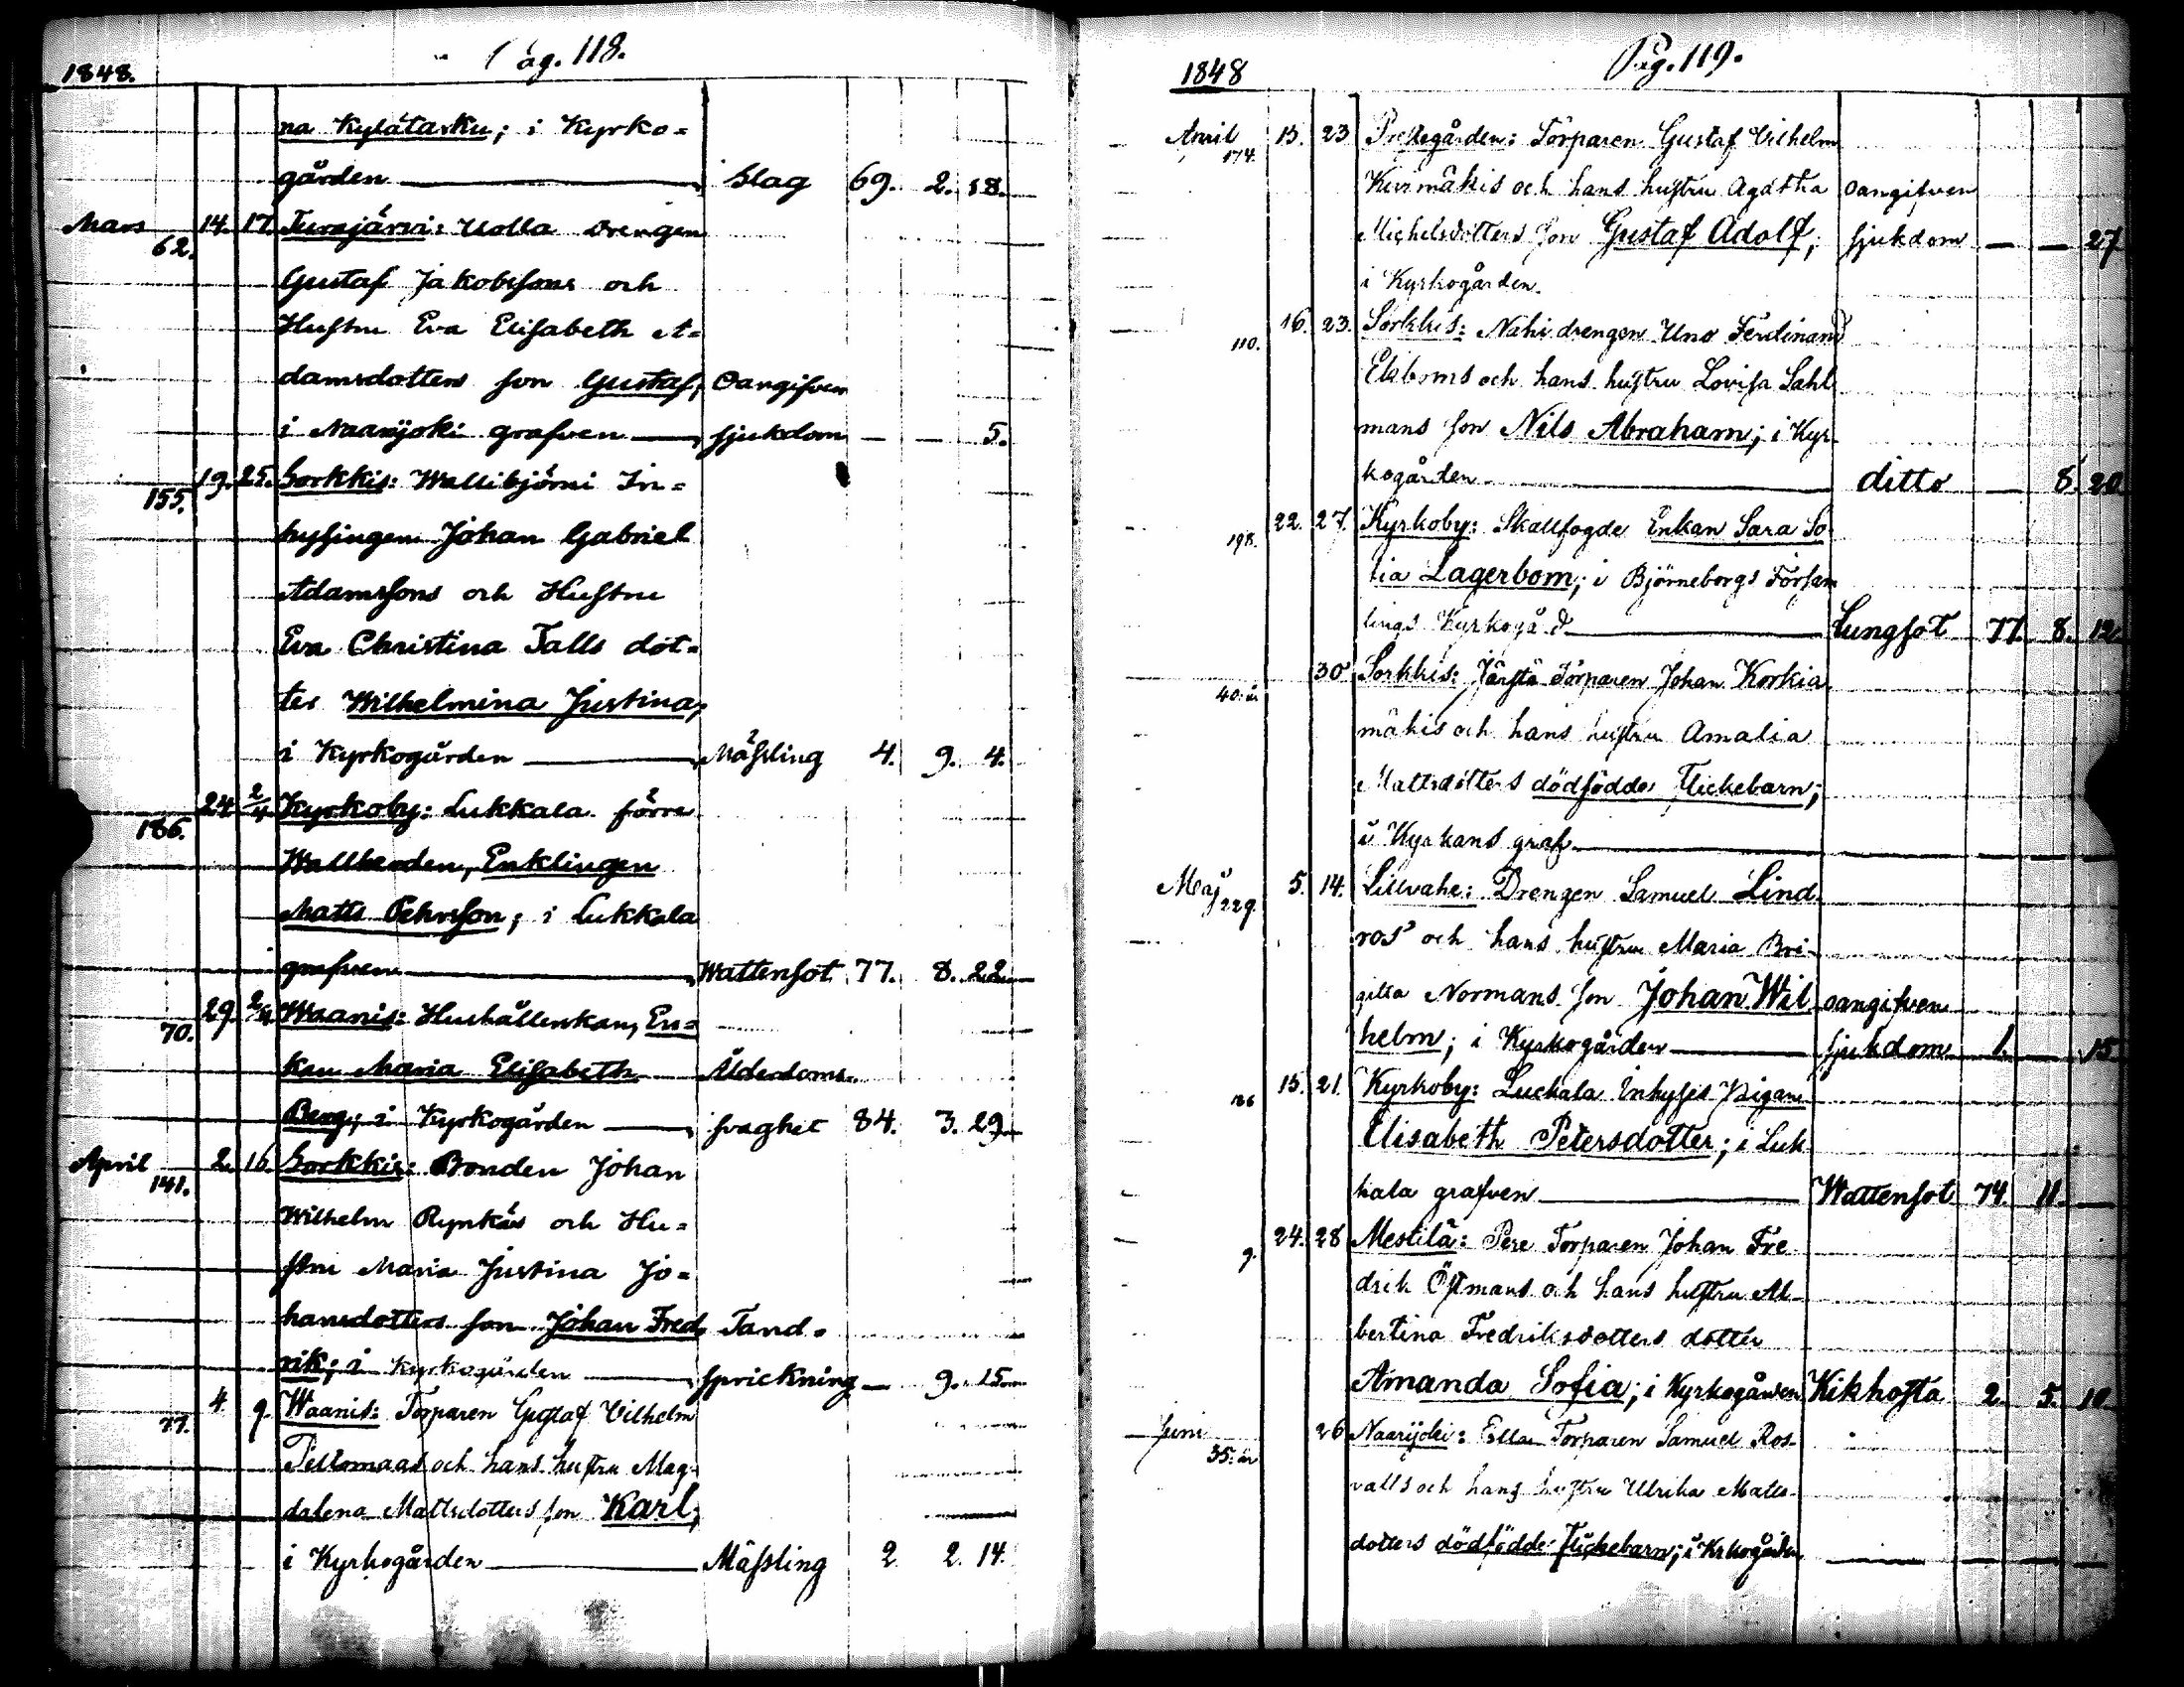 Pag. 118.
1848.
na Kylätasku; i Kyrko=
gården Slag 69. 2. 18.
Mars 14. 17. Turajärvi: Uolla Drengen
62.
Gustaf Jakobssons och
Hustru Eva Elisabeth A=
damsdotters son Gustaf; Oangifven
i Naarijoki grafven sjukdom — — 5.
19. 25. Sorkkis: Wallibjörni In=
155.
hysingen Johan Gabriel
Adamssons och Hustru
Eva Christina Talls dot=
ter Wilhelmina Justina;
i Kyrkogården Mässling 4. 9. 4.
24 2/4 Kyrkoby: Lukkala förre
186.
Wallherden, Enklingen
Matts Pehrsson; i Lukkala
grafven Wattensot 77. 8. 22.
29. 2/4 Waanis: Hushållerskan, En=
70.
kan Maria Elisabeth Ålderdoms=
Berg; i Kyrkogården svaghet 84. 3. 29.
April 2. 16. Sorkkis: Bonden Johan
141.
Wilhelm Rynkäs och Hu=
stru Maria Justina Jo=
hansdotters son Johan Fred Tand=
rik; i Kyrkogården sprickning — 9. 15.
4 9. Waanis: Torparen Gustaf Vilhelm
77.
Peltomaas och hans hustru Mag-
dalena Mattsdotters son Karl;
i Kyrkogården Mässling 2 2. 14.
Pag. 119.
1848
April 15. 23 Prestegården: Torparen Gustaf Vilhelm
174.
Kuxmäkis och hans hustru Agatha oangifven
Michelsdotters son Gustaf Adolf; sjukdom — — 27
i Kyrkogården.
16. 23. Sorkkis: Nahi drengen Uno Ferdinand
110.
Ekboms och hans hustru Lovisa Sahl
mans son Nils Abraham; i Kyr-
kogården ditto — 8. 20.
22. 27. Kyrkoby: Skallfogde Enkan Sara So
198.
fia Lagerbom; i Björneborgs Församl
lings Kyrkogård Lungsot 77. 8. 12
30 Sorkkis: Järstä Torparen Johan Korkia
40. år
mäkis och hans hustru Amalia
Mattsdotters dödfödda Flickebarn;
i Kyrkans graf
Maj 5. 14. Lillvahe: Drengen Samuel Lind
229.
ros' och hans hustru Maria Bri-
gitta Normans son Johan Wil oangifven
helm; i Kyrkogården sjukdom 1. — 15.
15. 21. Kyrkoby: Luckala Inhyses Pigan
186
Elisabeth Petersdotter; i Luk
kala grafven Wattensot 74. 11. —
24. 28 Mestilä: Pere Torparen Johan Fre
9.
drik Östmans och hans hustru Al-
bertina Fredriksdotters dotter
Amanda Sofia; i Kyrkogården Kikhosta 2. 5. 10
Juni 26 Naarijoki: Torparen Samuel Ros-
35. år
valls och hans hustru Ulrika Matts-
dotters dödfödde Flickebarn; i Krkogården